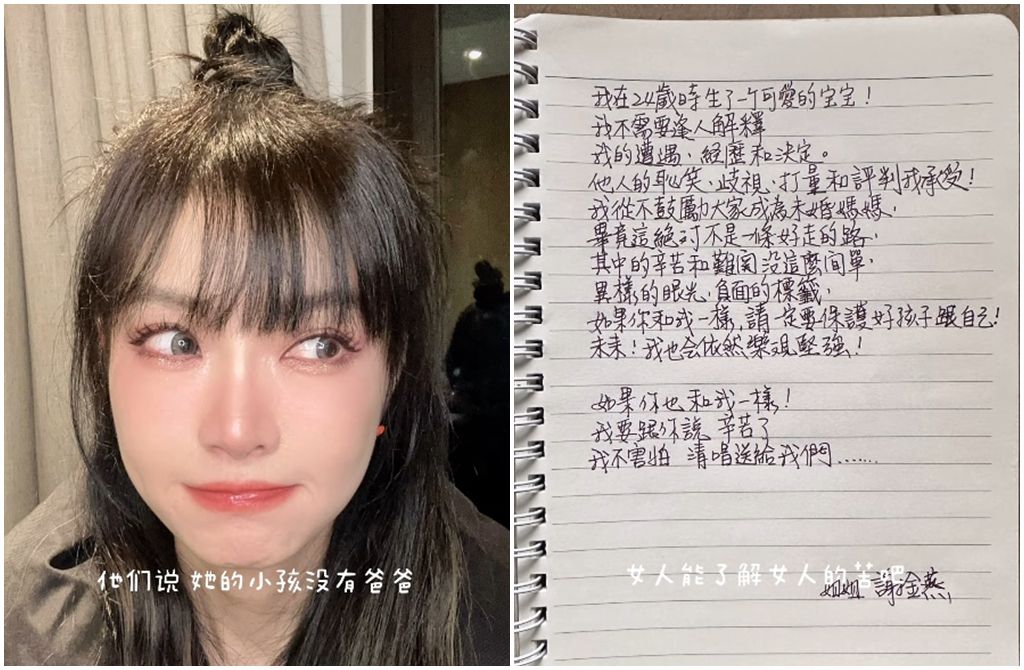 他们说 她的小孩没有爸爸
我在24歲時生了一个可愛的宝宝！
我不需要逢人解釋
我的遭遇、経歷和決定。
他人的恥笑、歧視、打量和評判我承受！
我從不鼓勵大家成為未婚媽媽，
畢竟這絕对不是一條好走的路，
其中的辛苦和難関没這麼间單，
異樣的眼光、負面的標籤，
如果你和我一樣，請一定要保護好孩子跟自己！
未来！我也会依然樂观堅強！
如果你也和我一樣！
我要跟你說 辛苦了
我不害怕 清唱送給我們……
女人能了解女人的苦吧
姐姐 謝金燕